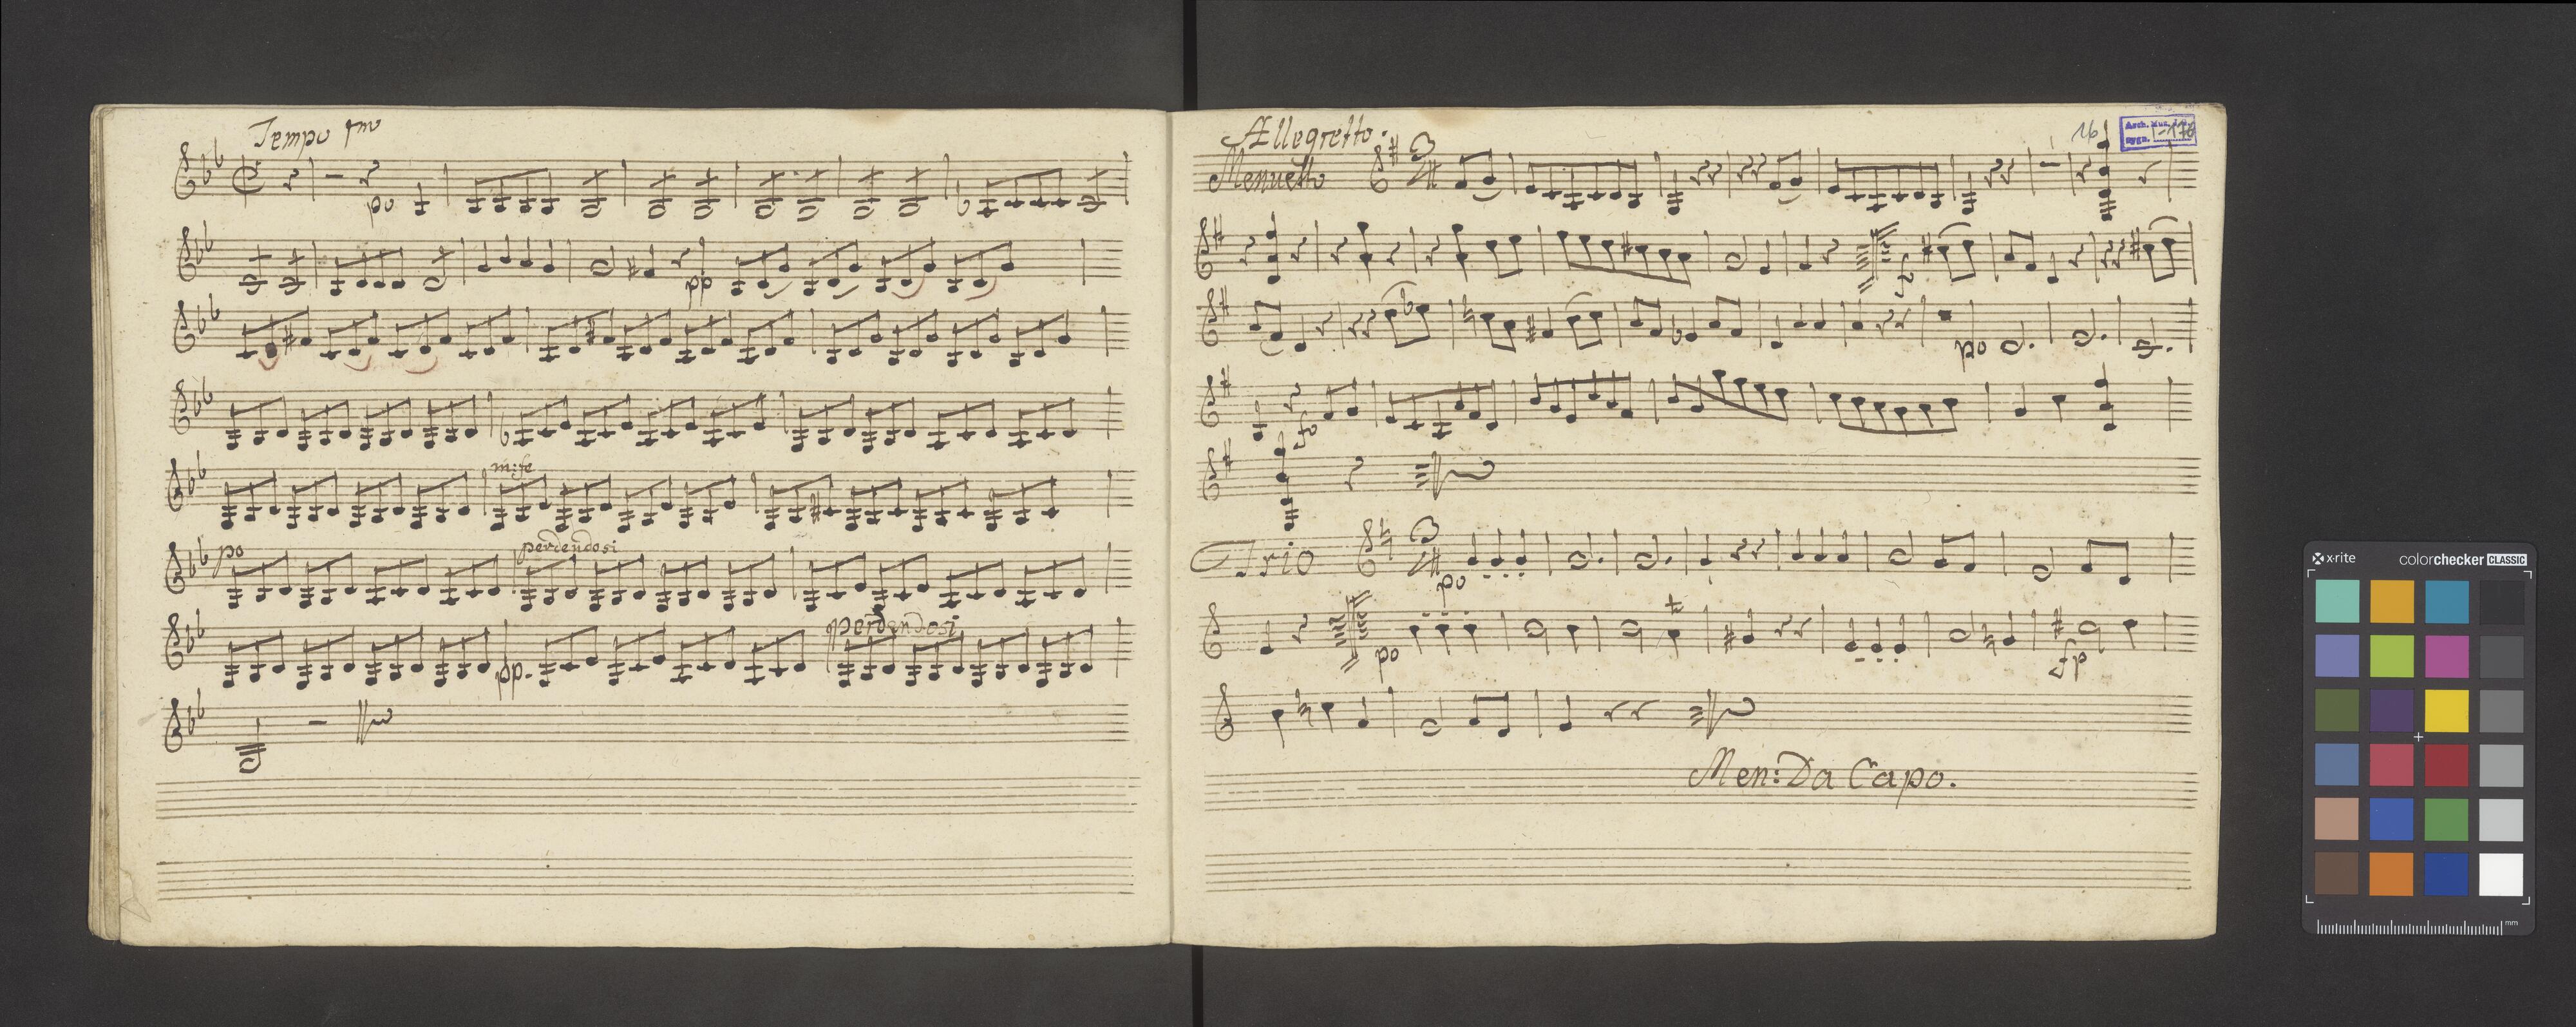 Tempo 1mo
po
pp
m:fe
po
perdendosi
perdendosi
pp.
Allegretto.
Menuetto
3
4
16
f
po
fo
Trio
3
4
po
po
fp
Men: Da Capo.
x-rite
colorchecker CLASSIC
mm